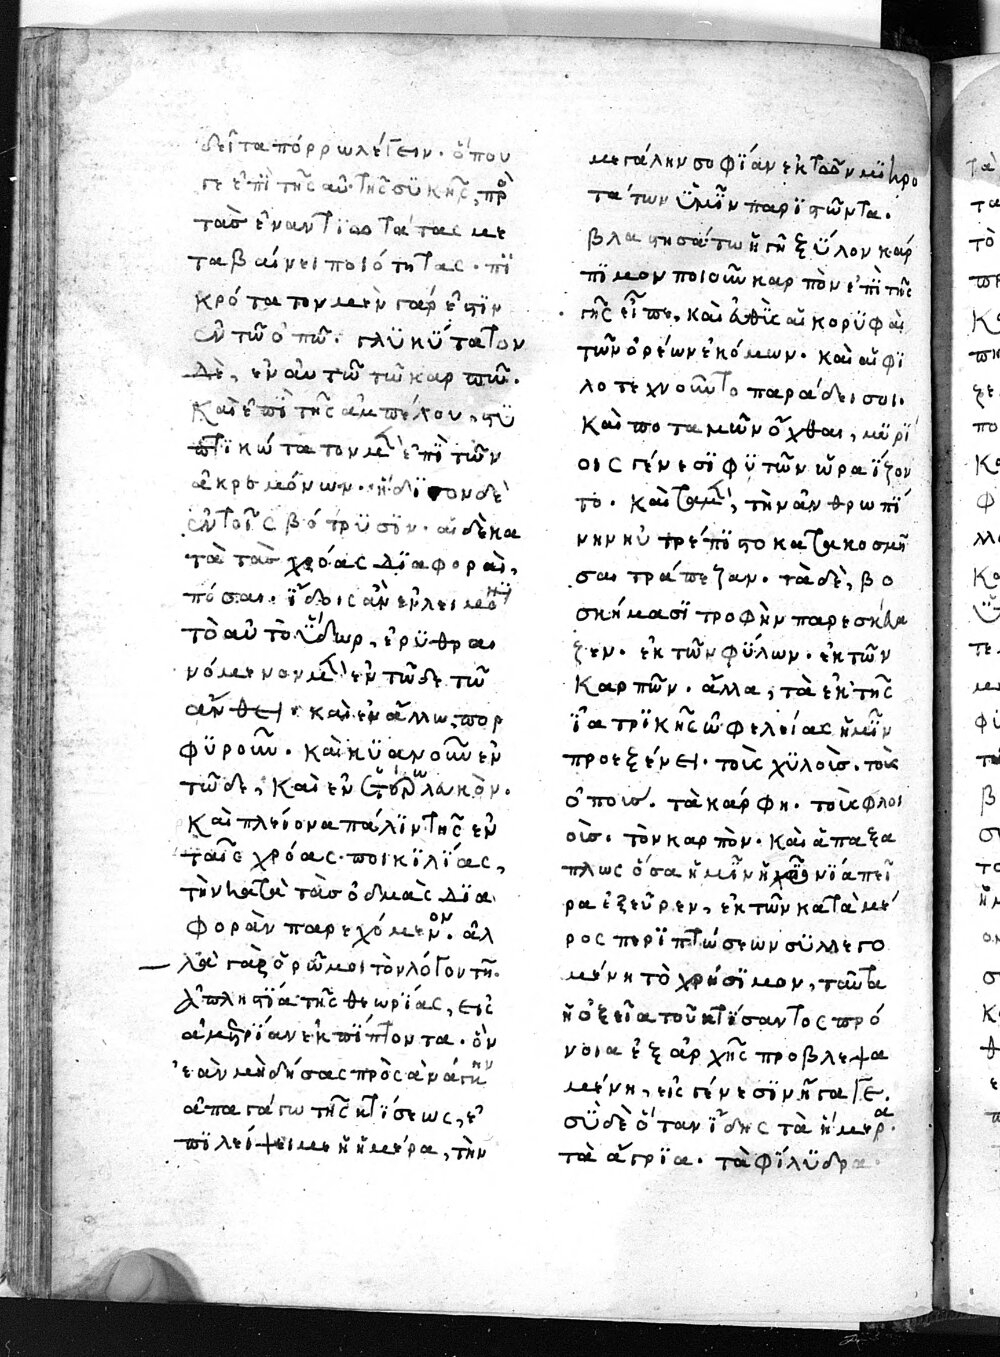 δεῖ τα πόρρω λέγειν. ὅπου
γε ἐπὶ τῆς αὐτῆς συκῆς, πρὸ
τὰσ ἐναντϊωτάτας με
ταβαίνει ποιότητας. πϊ
κρότατον μὲν γάρ ἐστϊν
ἐν τῶ ὀπῶ. γλϋκΰτατον
δὲ, ἐν αὐτῶ τῶ καρπῶ.
Καὶ ἐπὶ τῆς ἀμπέλου, στϋ
πτϊκώτατον μὲν ἐπὶ τῶν
ἀκρεμόνων. ἥδϊστον δὲ
ἐν τοῖς βότρϋσϊν. αἱ δὲ κα
τὰ τὰσ χρόας δϊαφοραὶ,
πόσαι. ἴδοις ἂν ἐν λειμῶνϊ
τὸ αὐτὸ ὕδωρ, ἐρϋθραι
νόμενον μὲν ἐν τῶδε τῶ
ἄνθει. καὶ ἐν ἄλλω πορ
φϋροῦν. καὶ κϋανοῦν ἐν
τῶδε, Καὶ ἐν ἑτέρω λευκὸν.
Καὶ πλείονα πάλϊν τῆς ἐν
ταῖς χρόας ποικϊλϊας,
τὴν κατὰ τὰσ ὀδμὰς δϊα
φορὰν παρεχόμενον. ἀλ
λὰ γὰρ ὁρῶ μοι τὸν λόγον τῆ
ἀπληστϊα τῆς θεωρϊας, εἰς
ἀμετρϊαν ἐκπϊπτοντα. ὃν
ἐὰν μὴ δήσας πρὸς ἀνάγκην
ἀπαγάγω τῆς κτϊσεως, ἐ
πϊλείψει με ἡ ἡμέρα, τὴν
μεγάλην σοφϊαν ἐκ τῶν μϊκρο
τάτων ϋμῖν παρϊστῶντα.
βλαστησάτω ἡ γῆ ξΰλον κάρ
πϊμον ποιοῦν καρπὸν ἐπὶ τῆς
γῆς εἶπε, καὶ εὐθὺς αἱ κορϋφαὶ
τῶν ὀρέων ἐκόμων. καὶ ἐφϊ
λοτεχνοῦντο παράδεισοι.
Καὶ ποταμῶν ὄχθαι, μϋρϊ
οις γένεσϊ φϋτῶν ὡραϊζον
το. Καὶ τὰ μὲν, τὴν ἀνθρωπϊ
νην ηὐτρέπϊστο κατακοσμῆ
σαι τράπεζαν. τὰ δὲ, βο
σκήμασϊ τροφὴν παρεσκεύα
ζεν. ἐκ τῶν φΰλων. ἐκ τῶν
Καρπῶν. ἄλλα, τὰ ἐκ τῆς
ϊατρϊκῆς ὠφελείας ἡμῖν
προεξένει. τοὺς χϋλοὺσ. τοὺς
ὀποὺσ. τὰ κάρφη. τοὺς φλοι
οὺσ. τὸν καρπὸν. Καὶ ἁπαξα
πλῶς ὅσα ἡμῖν ἡ χρονϊα πεῖ
ρα ἐξεῦρεν, ἐκ τῶν κατὰ μέ
ρος περϊπτώσεων σϋλλεγο
μένη τὸ χρήσϊμον, ταῦτα
ἡ ὀξεῖα τοῦ κτϊσαντος πρό
νοια ἐξ ἀρχῆς προβλεψα
μένη, εἰς γένεσϊν ἤγαγε.
σϋ δὲ ὅταν ἴδης τὰ ἥμερα.
τὰ ἄγρϊα. τὰ φϊλϋδρα